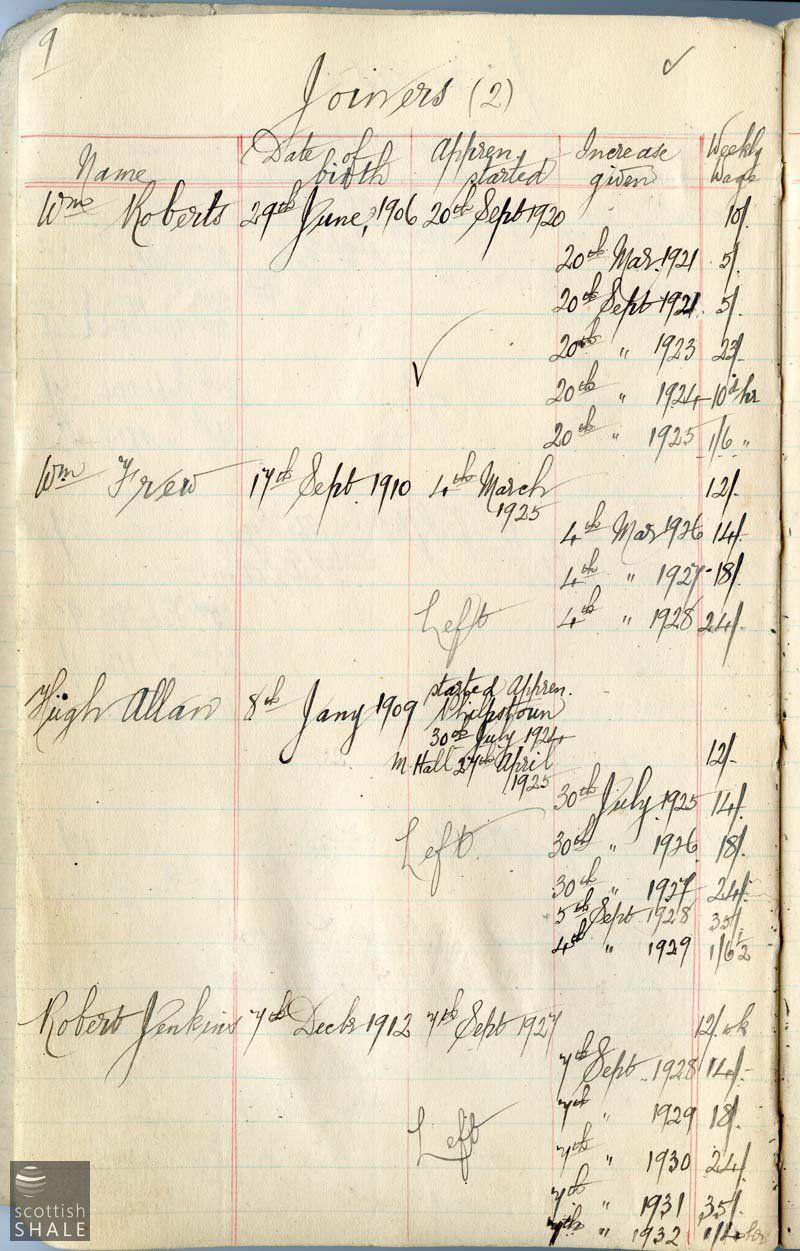 9
Joiners (2)
Name Date of birth Appren. started Increase given Weekly Wage
Wm Roberts 29th June, 1906 20th Sept 1920 10/.
20th Mar. 1921 5/.
20th Sept 1921. 5/.
20th " 1923 23/-
20th " 1924 10d hr
20th " 1925 1/6 "
Wm Frew 17th Sept. 1910 4th March 1925 12/.
4th Mar 1926 14/-
4th " 1927 18/.
Left 4th " 1928 24/-
Hugh Allan 8th Jany 1909 started Appren.
Philpstoun
30th July 1924
M. Hall 27th April 1925 12/-
30th July 1925 14/-
Left 30th " 1926 18/.
30th " 1927 24/-
5th Sept 1928 35/.
4th " 1929 1/6½
Robert Jenkins 7th Decbr 1912 7th Sept 1927 12/. wk
7th Sept. 1928 14/-
7th " 1929 18/.
Left 7th " 1930 24/.
7th " 1931 35/.
7th " 1932 1/4 hr
scottish
SHALE